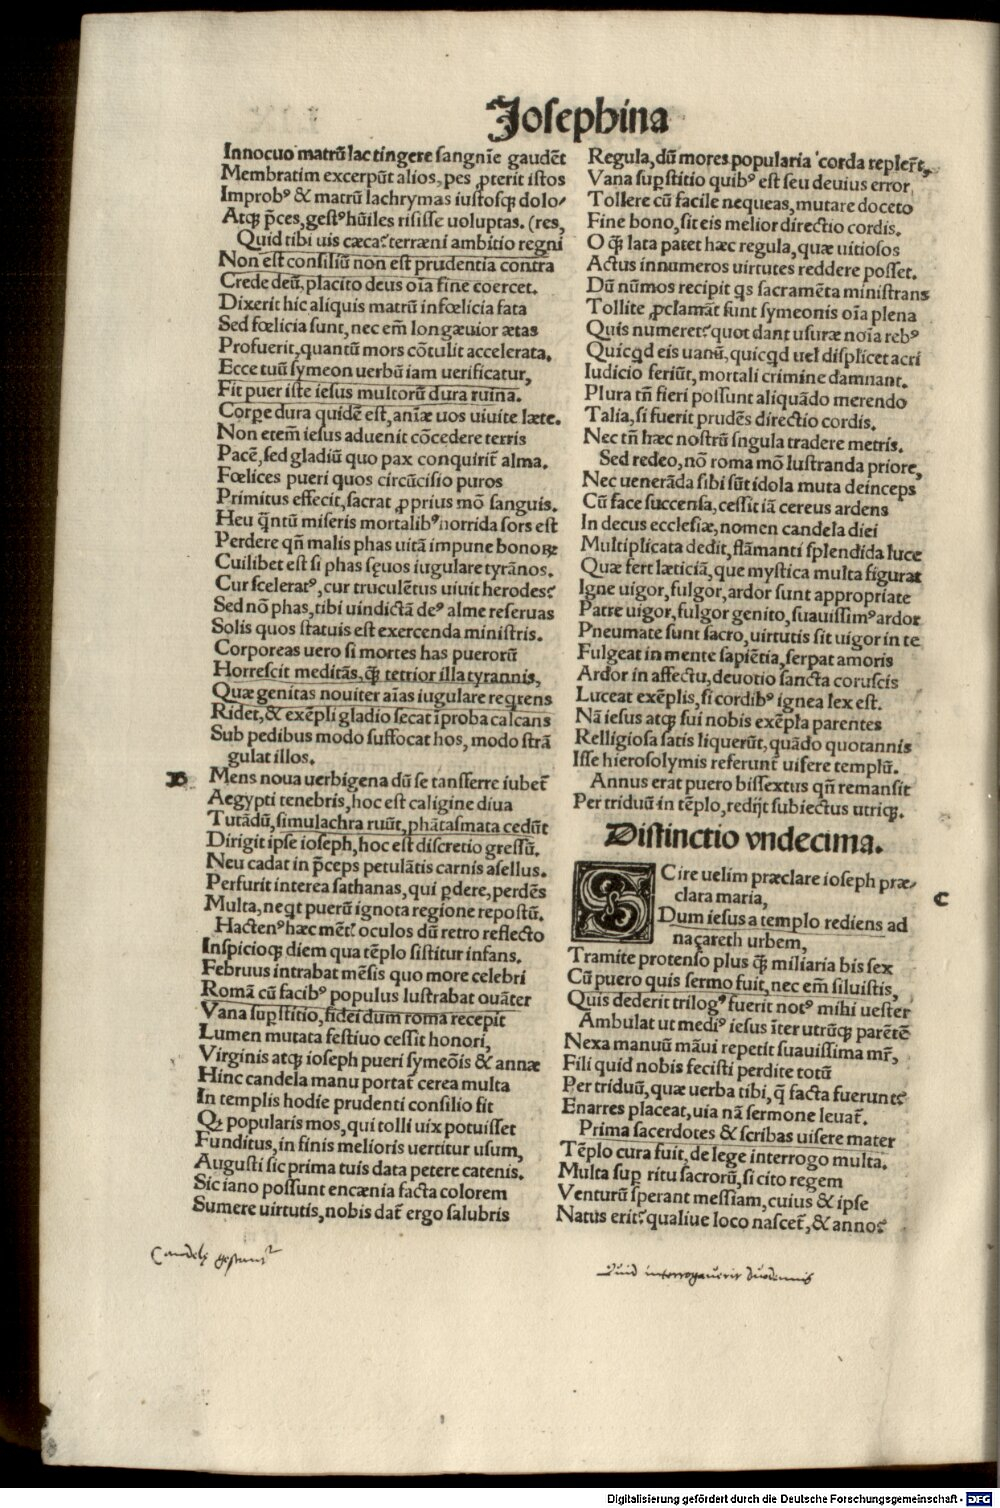 Iosephina
Innocuo matrū lac tingere sangnīe gaudēt
Membratim excerpūt alios, pes ꝓterit istos
Improbꝰ & matrū lachrymas iustosqꝫ dolo/
Atqꝫ p̄ces, gestꝰ hūiles risisse uoluptas. (res,
Quid tibi uis cæca? terræni ambitio regni
Non est consiliū non est prudentia contra
Crede deū, placito deus oīa fine coercet.
Dixerit hic aliquis matrū infœlicia fata
Sed fœlicia sunt, nec em̄ longæuior ætas
Profuerit, quantū mors cōtulit accelerata.
Ecce tuū symeon uerbū iam uerificatur,
Fit puer iste iesus multorū dura ruina.
Corꝑe dura quidē est, anīæ uos uiuite læte.
Non etem̄ iesus aduenit cōcedere terris
Pacē, sed gladiū quo pax conquirit̄ alma.
Fœlices pueri quos circūcisio puros
Primitus effecit, sacrat ꝓprius mō sanguis.
Heu q̄ntū miseris mortalibꝰ horrida sors est
Perdere qn̄ malis phas uitā impune bonoꝝ
Cuilibet est si phas sęuos iugulare tyrānos.
Cur sceleratꝰ, cur truculētus uiuit herodes?
Sed nō phas, tibi uindictā deꝰ alme reseruas
Solis quos statuis est exercenda ministris.
Corporeas uero si mortes has puerorū
Horrescit meditās, qꝫ̄ tetrior illa tyrannis,
Quæ genitas nouiter aīas iugulare reqrens
Ridet, & exēpli gladio secat īproba calcans
Sub pedibus modo suffocat hos, modo strā
gulat illos.
B Mens noua uerbigena dū se tansferre iubet̄
Aegypti tenebris, hoc est caligine diua
Tutādū, simulachra ruūt, phātasmata cedūt
Dirigit ipse ioseph, hoc est discretio gressū.
Neu cadat in p̄ceps petulātis carnis asellus.
Perfurit interea sathanas, qui ꝑdere, perdēs
Multa, neqt puerū ignota regione repostū.
Hactenꝰ hæc mēt? oculos dū retro reflecto
Inspicioqꝫ diem qua tēplo sistitur infans.
Februus intrabat mēsis quo more celebri
Romā cū facibꝰ populus lustrabat ouāter
Vana suꝑstitio, fidei dum roma recepit
Lumen mutata festiuo cessit honori,
Virginis atqꝫ ioseph pueri symeōis & annæ
Hinc candela manu portat̄ cerea multa
In templis hodie prudenti consilio fit
Qꝫ popularis mos, qui tolli uix potuisset
Funditus, in finis melioris uertitur usum,
Augusti sic prima tuis data petere catenis.
Sic iano possunt encænia facta colorem
Sumere uirtutis, nobis dat̄ ergo salubris
Candelę gestant
Regula, dū mores popularia corda replēt,
Vana suꝑstitio quibꝰ est seu deuius error
Tollere cū facile nequeas, mutare doceto
Fine bono, sit eis melior directio cordis.
O qꝫ̄ lata patet hæc regula, quæ uitiosos
Actus innumeros uirtutes reddere posset.
Dū nūmos recipit qs sacramēta ministrans
Tollite ꝓclamāt sunt symeonis oīa plena
Quis numeret? quot dant usuræ noīa rebꝰ
Quicqd eis uanū, quicqd uel displicet acri
Iudicio feriūt, mortali crimine damnant.
Plura tn̄ fieri possunt aliquādo merendo
Talia, si fuerit prudēs directio cordis.
Nec tn̄ hæc nostrū sngula tradere metris.
Sed redeo, nō roma mō lustranda priore,
Nec uenerāda sibi sūt idola muta deinceps
Cū face succensa, cessit iā cereus ardens
In decus ecclesiæ, nomen candela diei
Multiplicata dedit, flāmanti splendida luce
Quæ fert læticiā, que mystica multa figurat
Igne uigor, fulgor, ardor sunt appropriate
Patre uigor, fulgor genito, suauissimꝰ ardor
Pneumate sunt sacro, uirtutis sit uigor in te
Fulgeat in mente sapiētia, serpat amoris
Ardor in affectu, deuotio sancta coruscis
Luceat exēplis, si cordibꝰ ignea lex est.
Nā iesus atqꝫ sui nobis exēpla parentes
Relligiosa satis liquerūt, quādo quotannis
Isse hierosolymis referunt uisere templū.
Annus erat puero bissextus qn̄ remansit
Per triduū in tēplo, redijt subiectus utriqꝫ.
Distinctio vndecima.
SCire uelim præclare ioseph præ/
clara maria, C
Dum iesus a templo rediens ad
naçareth urbem,
Tramite protenso plus qꝫ̄ miliaria bis sex
Cū puero quis sermo fuit, nec em̄ siluistis,
Quis dederit trilogꝰ fuerit notꝰ mihi uester
Ambulat ut mediꝰ iesus īter utrūqꝫ parētē
Nexa manuū māui repetit suauissima mr̄,
Fili quid nobis fecisti perdite totū
Per triduū, quæ uerba tibi, q̄ facta fuerunt?
Enarres placeat, uia nā sermone leuat̄.
Prima sacerdotes & scribas uisere mater
Tēplo cura fuit, de lege interrogo multa.
Multa suꝑ ritu sacrorū, si cito regem
Venturū sperant messiam, cuius & ipse
Natus erit? qualiue loco nascet̄, & anno?
Quid interrogauerit duodennis
Digitalisierung gefördert durch die Deutsche Forschungsgemeinschaft - DFG